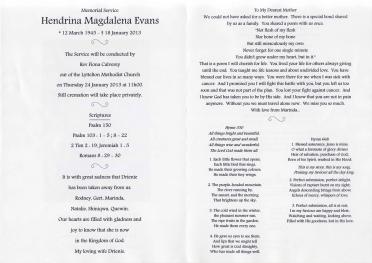 Memorial Service
Hendrina Magdalena Evans
* 12 March 1945 - † 18 January 2013
The Service will be conducted by
Rev Fiona Calveray
out of the Lyttelton Methodist Church
on Thursday 24 January 2013 at 11h00.
Still cremation will take place privately.
Scriptures
Psalm 150
Psalm 103 : 1 - 5 ; 8 - 22
2 Tim 2 : 19, Jeremiah 1 : 5
Romans 8 : 29 - 30
It is with great sadness that Drienie
has been taken away from us
Rodney, Gert, Marinda,
Natalie, Shinayne, Quewin.
Our hearts are filled with gladness and
joy to know that she is now
in the Kingdom of God.
My loving wife Drienie.
To My Dearest Mother
We could not have asked for a better mother. There is a special bond shared
by us as a family. You shared a poem with us once.
"Not flesh of my flesh
Nor bone of my bone
But still miraculously my own.
Never forget for one single minute
You didn't grow under my heart, but in it"
That is a poem I will cherish for life. You lived your life for others always giving
until the end. You taught me life lessons and about undivided love. You have
blessed our lives in so many ways. You were there for me when I was sick with
cancer. And I promised you I will fight this battle with you, but you left us too
soon and that was not part of the plan. You lost your fight against cancer. And
I know God has taken you to be by His side. And I know that you are not in pain
anymore. Without you we must travel alone now. We miss you so much.
With love from Marinda..
Hymn 530
All things bright and beautiful,
All creatures great and small
All things wise and wonderful
The Lord God made them all
1. Each little flower that opens,
Each little bird that sings,
He made their glowing colours,
He made their tiny wings.
2. The purple-headed mountain,
The river running by
The sunset, and the morning
That brightens up the sky.
3. The cold wind in the winter,
the pleasant summer sun,
The ripe fruits in the garden,
He made them every one.
4. He gave us eyes to see them,
And lips that we might tell
How great is God almighty,
Who has made all things well.
Hymn 668
1. Blessed assurance, Jesus is mine.
O what a foretaste of glory divine
Heir of salvation, purchase of God,
Born of his Spirit, washed in His blood.
This is my story, this is my song,
Praising my Saviour all the day long
2. Perfect submission, perfect delight,
Visions of rapture burst on my sight;
Angels descending brings from above
Echoes of mercy, whispers of love.
3. Perfect submission, all is at rest,
I in my Saviour am happy and blest.
Watching and waiting, looking above
Filled with His goodness, lost in His love.